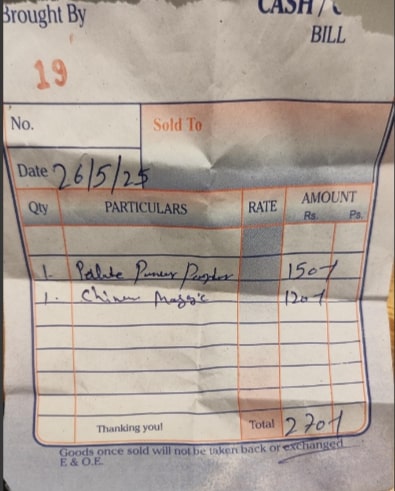 Brought By
CASH /
BILL
19
No.
Sold To
Date 26/5/25
Qty PARTICULARS RATE AMOUNT
Rs. Ps.
1. Paneer 150/-
1. Maggie 120/-
Thanking you! Total 270/-
Goods once sold will not be taken back or exchanged
E & O.E.